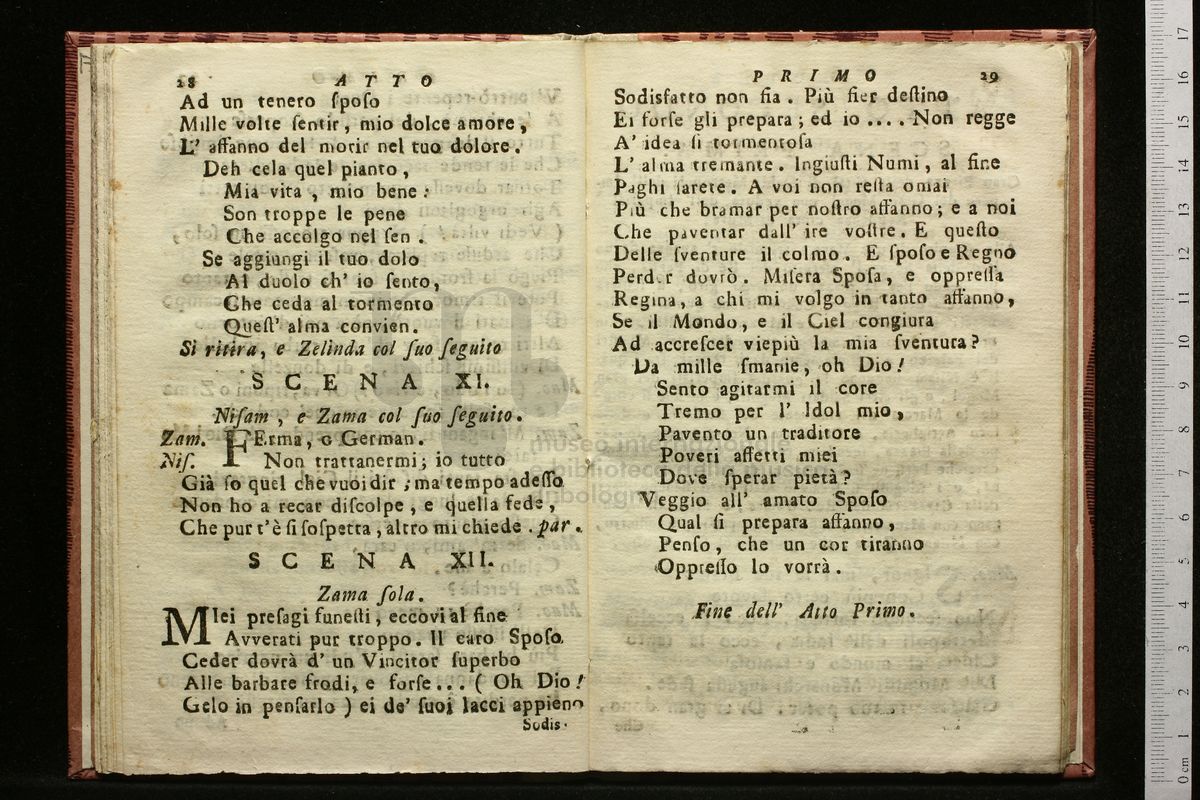 28 ATTO
Ad un tenero ſpoſo
Mille volte ſentir, mio dolce amore,
L' affanno del morir nel tuo dolore.
Deh cela quel pianto,
Mia vita, mio bene:
Son troppe le pene
Che accolgo nel ſen.
Se aggiungi il tuo dolo
Al duolo ch' io ſento,
Che ceda al tormento
Queſt' alma convien.
Si ritira, e Zelinda col ſuo ſeguito
SCENA XI.
Niſam, e Zama col ſuo ſeguito.
Zam. FErma, o German.
Niſ. Non trattanermi; io tutto
Già ſo quel che vuoi dir; ma tempo adeſſo
Non ho a recar diſcolpe, e quella fede,
Che pur t'è ſi ſoſpetta, altro mi chiede. par.
SCENA XII.
Zama ſola.
MIei preſagi funeſti, eccovi al fine
Avverati pur troppo. Il caro Spoſo
Ceder dovrà d' un Vincitor ſuperbo
Alle barbare frodi, e forſe... ( Oh Dio!
Gelo in penſarlo ) ei de' ſuoi lacci appieno
Sodis-
PRIMO 29
Sodisfatto non ſia. Più fier deſtino
Ei forſe gli prepara; ed io .... Non regge
A' idea ſi tormentoſa
L' alma tremante. Ingiuſti Numi, al fine
Paghi ſarete. A voi non reſta omai
Più che bramar per noſtro affanno; e a noi
Che paventar dall' ire voſtre. E queſto
Delle ſventure il colmo. E ſpoſo e Regno
Perder dovrò. Miſera Spoſa, e oppreſſa
Regina, a chi mi volgo in tanto affanno,
Se il Mondo, e il Ciel congiura
Ad accreſcer viepiù la mia ſventura?
Da mille ſmanie, oh Dio!
Sento agitarmi il core
Tremo per l' Idol mio,
Pavento un traditore
Poveri affetti miei
Dove ſperar pietà?
Veggio all' amato Spoſo
Qual ſi prepara affanno,
Penſo, che un cor tiranno
Oppreſſo lo vorrà.
Fine dell' Atto Primo.
museo internazionale
e biblioteca della musica
di bologna
0 cm 1 2 3 4 5 6 7 8 9 10 11 12 13 14 15 16 17